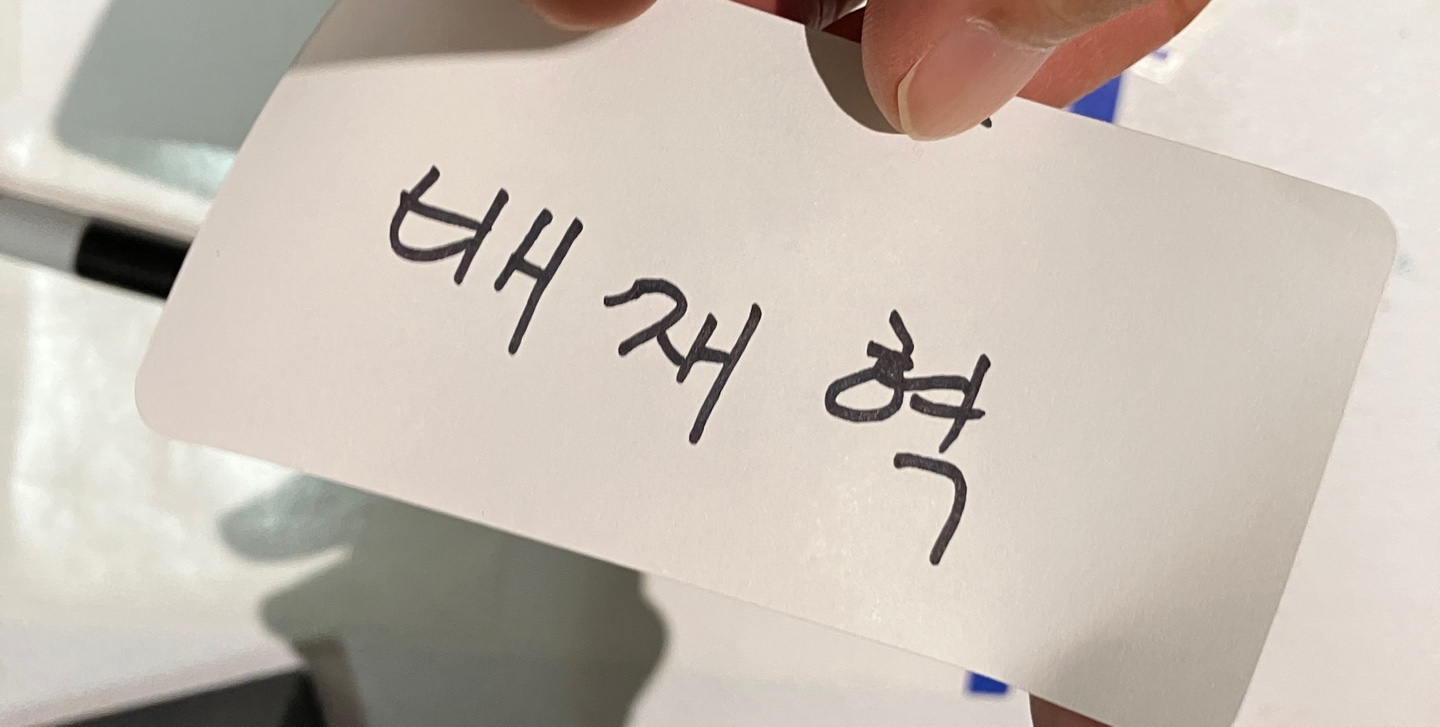 배재혁